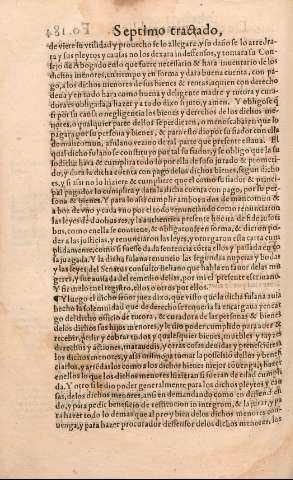 Septimo tractado,
de viere su vtilidad y prouecho se lo allegara, y su daño se lo arredra
ra y sus pleytos y causas no los dexara indefensos, y tomara su Con
sejo de Abogado en lo que fuere necessario & hara inuentario de los
dichos menores, en tiempo y en forma y dara buena cuenta, con pa-
go, a los dichos menores de sus bienes & rentas, a quien con derecho
deua y en todo hara como buena y deligente madre y tutora y cura-
dora es obligada, a hazer y a todo dixo si juro, y amen. Y obligose q̃
si por su causa o negligencia los bienes y derechos de los dichos me-
nores, o qualquier parte dellos se perdieren, o menoscabaren que lo
pagara, por su persona y bienes, & para esto dio por su fiador con ella
de mancomun, a fulano vezino de tal parte que presente estaua. El
qual dicho fulano se constituyo por tal su fiador, y se obligo que la su
sodicha hara & cumplira todo lo por ella de suso jurado & prometi-
do, y dara la dicha cuenta con pago delos dichos bienes, segun dicho
es, y si assi no lo hiziere & cumpliere que el como su fiador & princi-
pal pagador lo cumplira y dara la dicha cuenta con pago, por su per-
sona & bienes. Y para lo assi cumplir ambos a dos de mancomun &
a boz de vno y cada vno el todo renunciando como renunciaron
las leyes de duobus reis, y la authentica presente hoc ita de fide jusso-
ribus, como en ella se contiene, & obligaronse en forma, & dieron po-
der a las justicias, y renunciaron las leyes, y otorgaron esta carta cum
plidamente, como si fuesse dada sentencia contra ellos y passada en co
sa juzgada. Y la dicha fulana renuncio las segundas nupcias y bodas
y las leyes del Senatus consulto Beliano que habla en fauor delas mu
geres, y fue auisada del remedio dellas, por mi el presente escriuano.
Y firmolo en el registro, ellos o otros por ellos.
¶ Y luego el dicho señor juez dixo, que visto q̃ la dicha fulana auia
hecho la solemnidad que de derecho se requeria la encargaua y encar
go del dicho officio de tutora, & curadora de las personas & bienes
delos dichos sus hijos menores, y le dio poder cumplido para auer &
recebir, pedir y cobrar todos y qualesquier bienes, muebles y rayzes
derechos y actiones, marauedis, y otras cosas deuidas y pertenescien
los dichos menores, y assi mismo para tomar la possessio dellos y benefi
ciarlos, y arrendarlos como a los dichos bienes mejor conuenga, y hazer
en ellos lo que los dichos menores hizieran si fueran de edad cumpli-
da. Y otro si le dio poder generalmente para los dichos pleytos y cau
sas, delos dichos menores, ansi en demandando como en defendien
do, y para pedir beneficio de restitucion in integrum, & la jurar, y pa
ra hazer todo lo demas que al pro y bien delos dichos menores con-
uenga, y para hazer procurador deffensor delos dichos menores, los